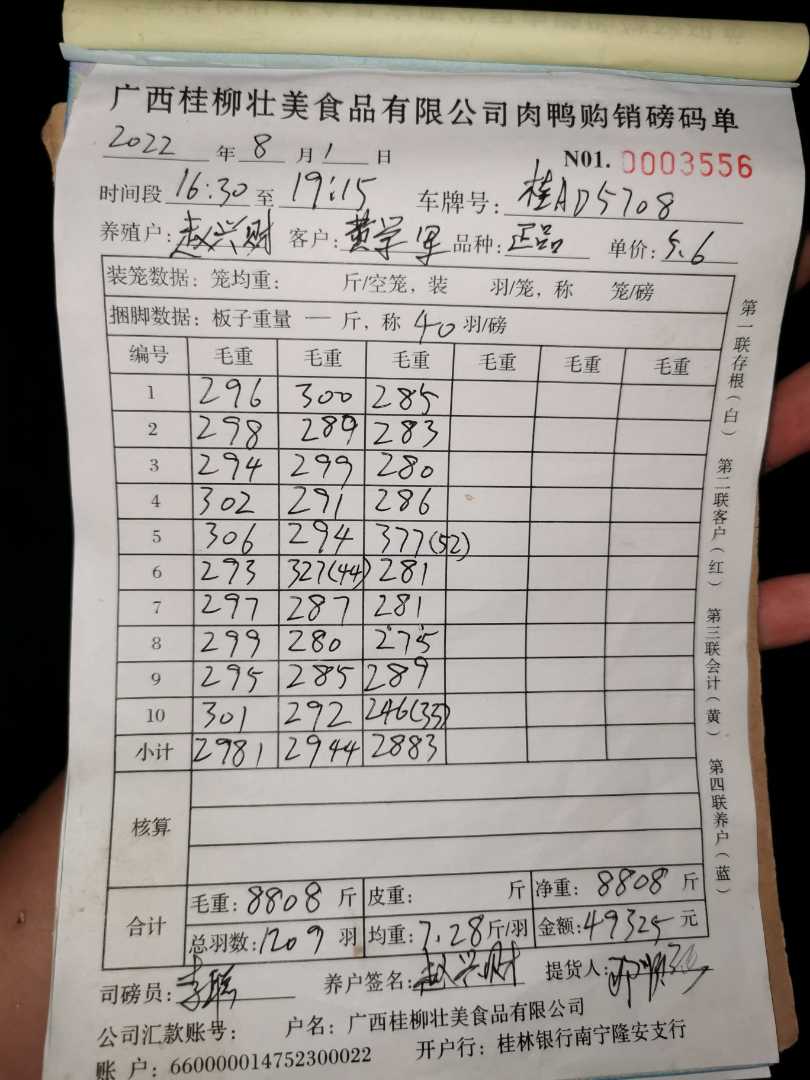 广西桂柳壮美食品有限公司肉鸭购销磅码单
2022 年 8 月 1 日 N01. 0003556
时间段 16:30 至 19:15 车牌号: 桂AD5708
养殖户: 赵兴财 客户: 黄学军 品种: 正品 单价: 5.6
装笼数据: 笼均重: 斤/空笼, 装 羽/笼, 称 笼/磅
捆脚数据: 板子重量 — 斤, 称 40 羽/磅
编号 毛重 毛重 毛重 毛重 毛重 毛重
1 296 300 285
2 298 289 283
3 294 299 280
4 302 291 286
5 306 294 377(52)
6 293 327(44) 281
7 297 287 281
8 299 280 275
9 295 285 289
10 301 292 246(33)
小计 2981 2944 2883
核算
合计 毛重: 8808 斤 皮重: 斤 净重: 8808 斤
总羽数: 1209 羽 均重: 7.28 斤/羽 金额: 49325 元
司磅员: 养户签名: 赵兴财 提货人:
公司汇款账号: 户名: 广西桂柳壮美食品有限公司
账 户: 660000014752300022 开户行: 桂林银行南宁隆安支行
第一联存根(白) 第二联客户(红) 第三联会计(黄) 第四联养户(蓝)